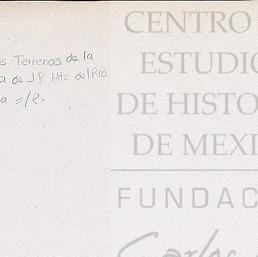 s Terrenos de la
a de J.P. Mtz del Rio
a s/l.
CENTRO
ESTUDIO
DE HISTO
DE MEXI
FUNDAC
Carlos